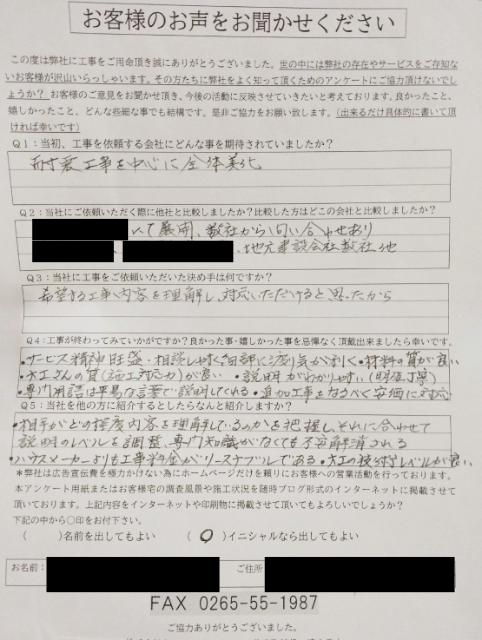 お客様のお声をお聞かせください
この度は弊社に工事をご用命頂き誠にありがとうございました。世の中には弊社の存在やサービスをご存知な
いお客様が沢山いらっしゃいます。その方たちに弊社をよく知って頂くためのアンケートにご協力頂けないでし
ょうか？お客様のご意見をお聞かせ頂き、今後の活動に反映させていきたいと考えております。良かったこと、
嬉しかったこと、どんな些細な事でも結構です。是非ご協力をお願い致します。(出来るだけ具体的に書いて頂
ければ幸いです)
Q1：当初、工事を依頼する会社にどんな事を期待されていましたか？
耐震工事を中心に全体美化
Q2：当社にご依頼いただく際に他社と比較しましたか？比較した方はどこの会社と比較しましたか？
いて展開、数社から問い合わせあり
、地元建設会社数社他
Q3：当社に工事をご依頼いただいた決め手は何ですか？
希望する工事内容を理解し、対応いただけると思ったから
Q4：工事が終わってみていかがですか？良かった事・嬉しかった事を忌憚なく頂戴出来ましたら幸いです。
・サービス精神旺盛・相談しやすく細部に渡り気が利く・材料の質が良い
・大工さんの質(施工対応力)が良い ・説明がわかりやすい(明確丁寧)
・専門用語は平易な言葉で説明してくれる・追加工事をなるべく安価に対応
Q5：当社を他の方に紹介するとしたらなんと紹介しますか？
・相手がどの程度内容を理解しているのかを把握し、それに合わせて
説明のレベルを調整、専門知識がなくても不安解消される
・ハウスメーカーよりも工事料金がリーズナブルである・大工の技術レベルが良い
＊弊社は広告宣伝費を極力かけない為にホームページだけを頼りにお客様への営業活動を行っております。
本アンケート用紙またはお客様宅の調査風景や施工状況を随時ブログ形式のインターネットに掲載させて
頂いております。上記内容をインターネットや印刷物に掲載させて頂いてもよろしいでしょうか？
下記の中から○印をお付下さい。
( )名前を出してもよい (○)イニシャルなら出してもよい
お名前： ご住所
FAX 0265-55-1987
ご協力ありがとうございました。